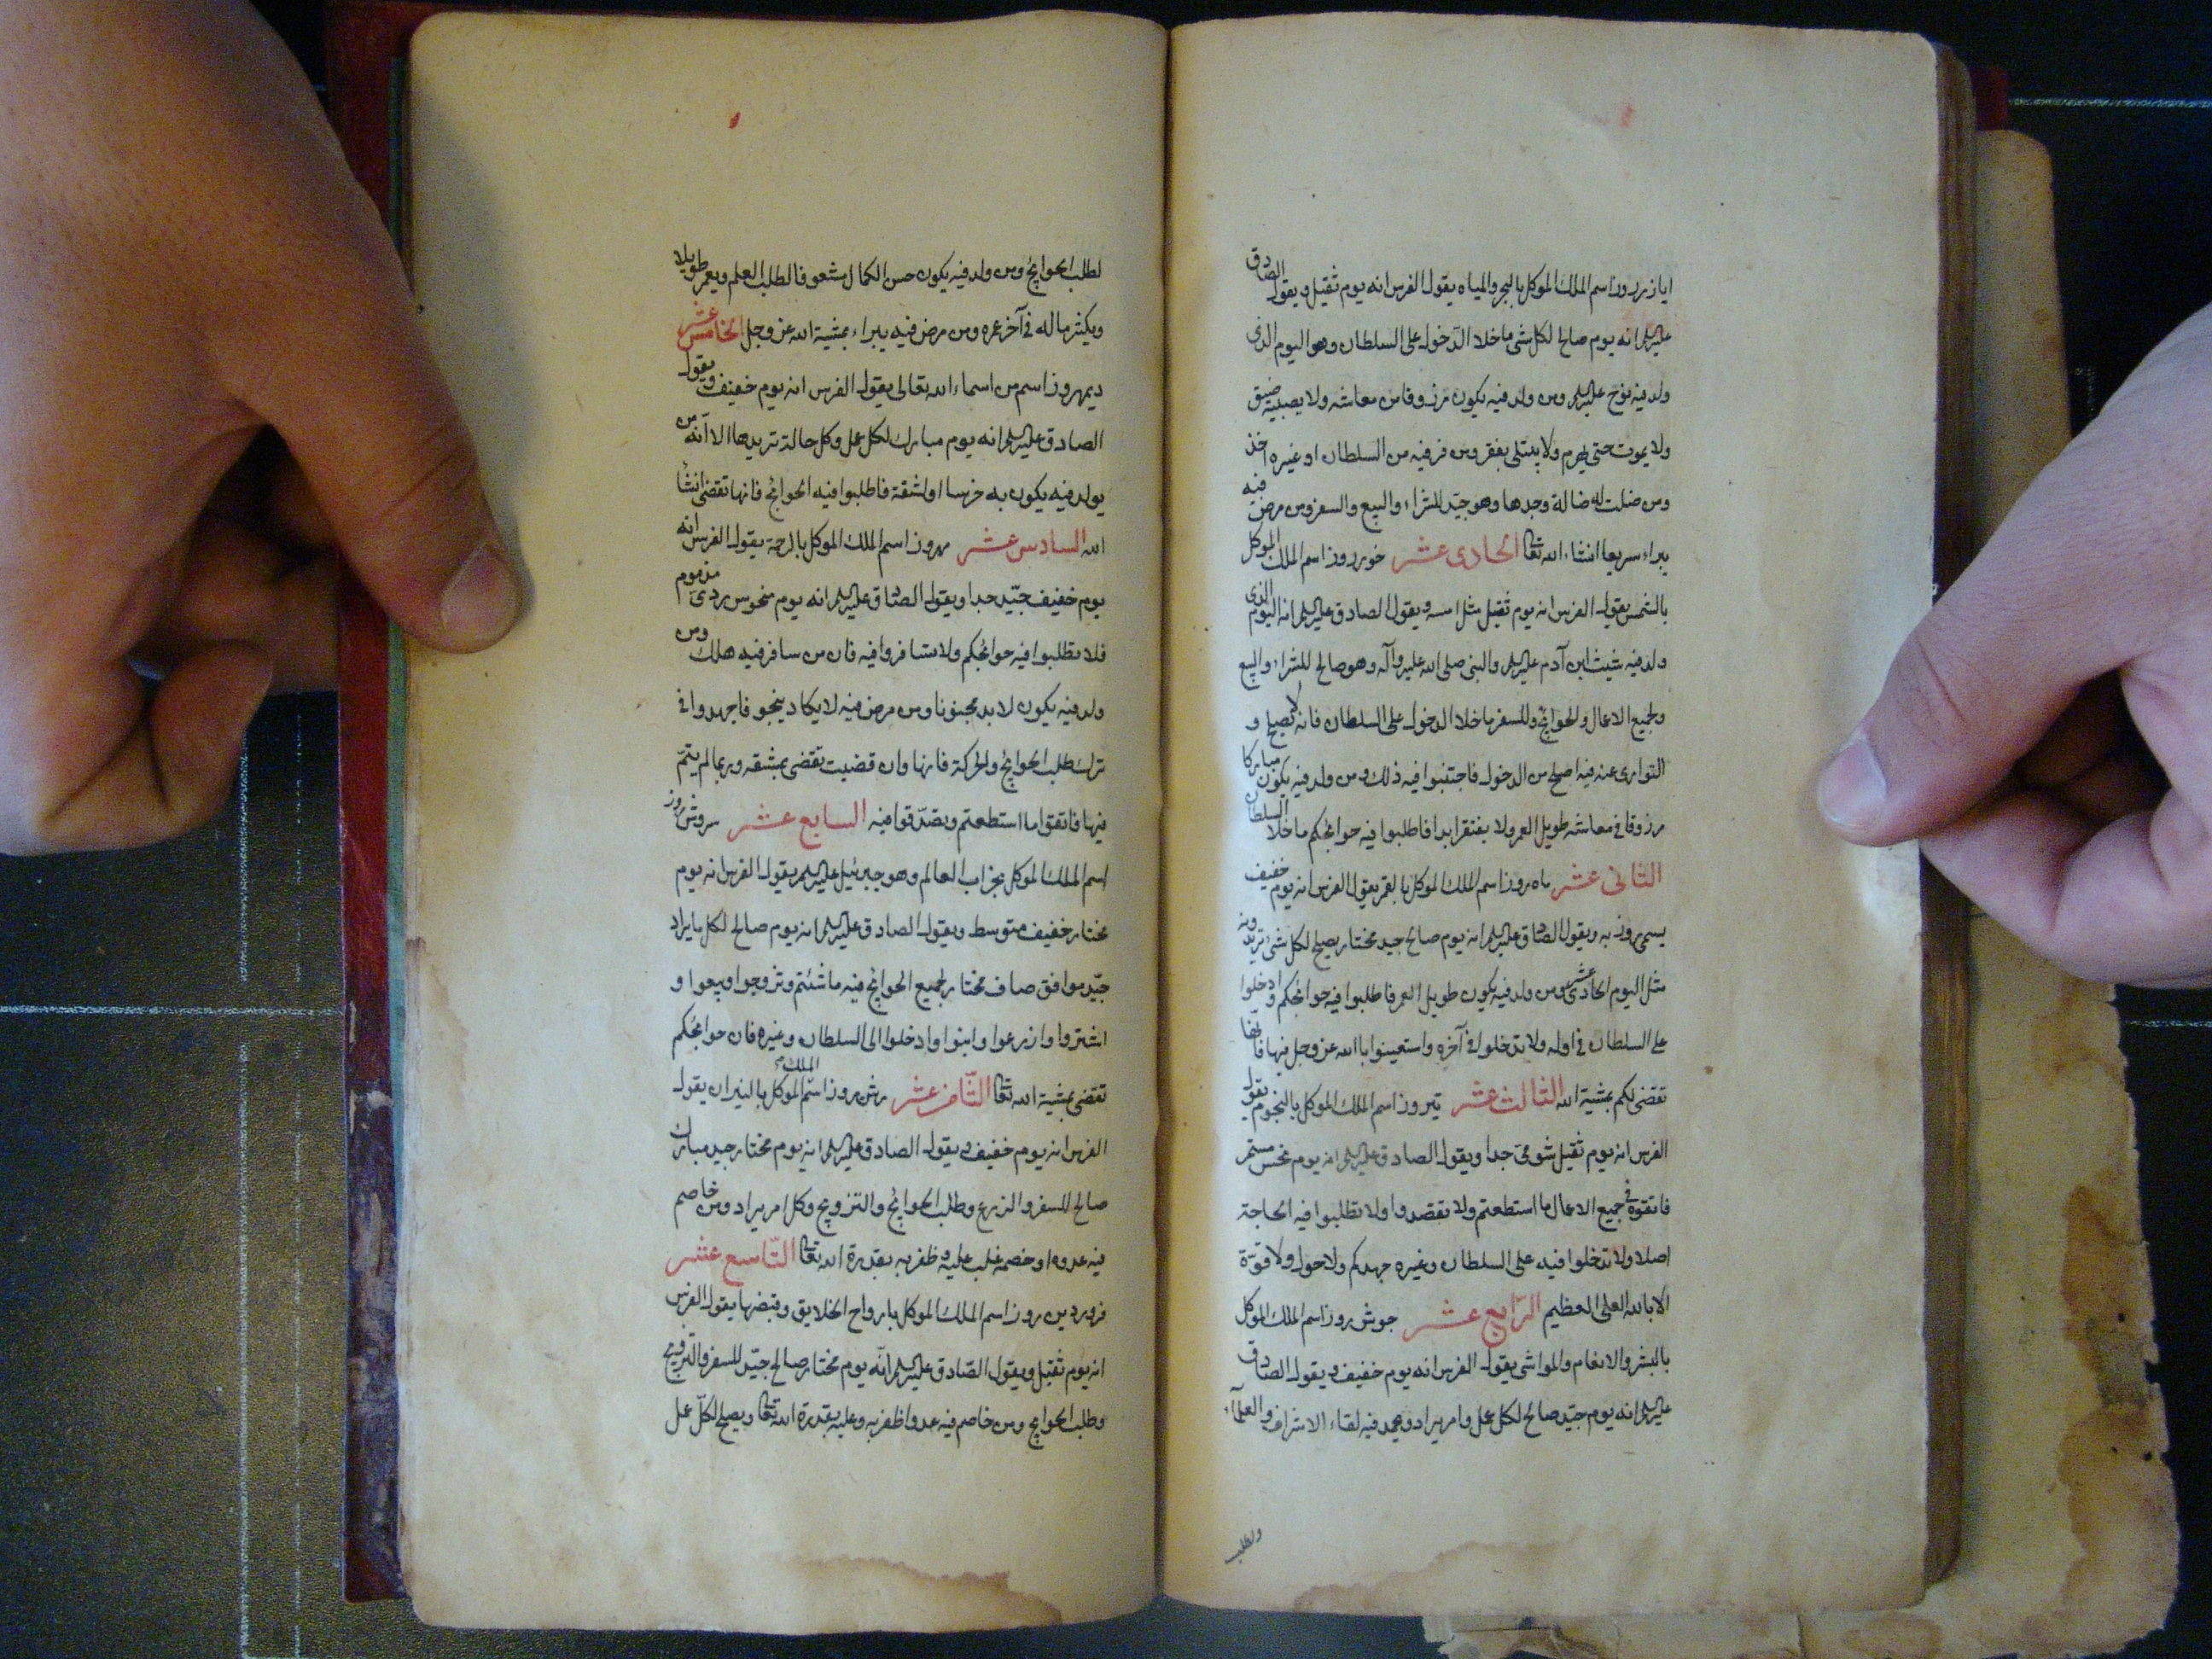 ابازرروز اسم الملك الموكل بالبحر والمياه يقول الفرس انه يوم ثقيل ويقول الصادق
عليه السلام انه يوم صالح لكل شئ ما خلا الدّخول على السلطان وهو اليوم الذى
ولد فيه نوح عليه السلم ومن ولد فيه يكون مرزوقا من معاشه ولا يصيبه ضيق
ولا يموت حتى يهرم ولا يبتلى بفقر ومن فر فيه من السلطان او غيره اخذ
ومن ضلت له ضالة وجدها وهو جيّد للشراء والبيع والسفر ومن مرض فيه
يبراء سريعا انشاء الله تعالى الحادى عشر خورروز اسم الملك الموكل
بالشمس يقول الفرس انه يوم ثقيل مثل امسه ويقول الصادق عليه السلم انه اليوم الذى
ولد فيه شيث ابن آدم عليه السلم والنبى صلى الله عليه وآله وهو صالح للشراء والبيع
ولجميع الاعمال والحوائج وللسفر ما خلا الدخول على السلطان فانه لا يصلح و
التوارى عنه فيه اصلح من الدخول فاجتنبوا فيه ذلك ومن ولد فيه يكون مباركا
مرزوقا فى معاشه طويل العمر ولا يفتقر ابدا فاطلبوا فيه حوائجكم ما خلا السلطان
الثانى عشر ماه روز اسم الملك الموكل بالقمر يقول الفرس انه يوم خفيف
يسمى روز به ويقول الصادق عليه السلم انه يوم صالح جيد مختار يصلح لكل شئ تريدونه
مثل اليوم الحادى عشر ومن ولد فيه يكون طويل العمر فاطلبوا فيه حوائجكم وادخلوا
على السلطان فى اوله ولا تدخلوا فى آخره واستعينوا بالله عز وجل فيها فانها
تقضى لكم بمشية الله الثالث عشر تيرروز اسم الملك الموكل بالنجوم يقول
الفرس انه يوم ثقيل شومى جدا ويقول الصادق عليه السلم انه يوم نحس مستمر
فاتقوه فى جميع الاعمال ما استطعتم ولا تقصدوا ولا تطلبوا فيه الحاجة
اصلا ولا تدخلوا فيه على السلطان وغيره جهدكم ولا حول ولا قوّة
الا بالله العلى العظيم الرّابع عشر جوش روز اسم الملك الموكل
بالبشر والانعام والمواشى يقول الفرس انه يوم خفيف ويقول الصادق
عليه السلم انه يوم جيّد صالح لكل عمل وامر يراد ويحمد فيه لقاء الاشراف والعلمآء
ولطلب
لطلب الحوائج ومن ولد فيه يكون حسن الكمال مشعوفا لطلب العلم ويعمر طويلا
ويكثر ماله فى آخر عمره ومن مرض فيه يبراء بمشية الله عز وجل الخامس عشر
ديمهروز اسم من اسماء الله تعالى يقول الفرس انه يوم خفيف ويقول
الصادق عليه السلم انه يوم مبارك لكل عمل وكل حالة تريدها الا انه من
يولد فيه يكون به خرسا او لثغة فاطلبوا فيه الحوائج فانها تقضى انشأ
الله السادس عشر مهروز اسم الملك الموكل بالرحمة يقول الفرس انه
يوم خفيف جيّد جدا ويقول الصادق عليه السلم انه يوم منحوس ردىّ مذموم
فلا تطلبوا فيه حوائجكم ولا تسافروا فيه فان من سافر فيه هلك ومن
ولد فيه يكون لا بد مجنونا ومن مرض فيه لا يكاد ينجو فاجهدوا فى
ترك طلب الحوائج والحركة فانها وان قضيت تقضى بمشقه وربما لم يتمّ
فيها فاتقوا ما استطعتم وتصدّقوا فيه السابع عشر سروش روز
اسم الملك الموكل بخراب العالم وهو جبرئيل عليه السلم يقول الفرس انه يوم
مختار خفيف متوسط ويقول الصادق عليه السلم انه يوم صالح لكل ما يراد
جيّد موافق صاف مختار لجميع الحوائج فيه ما شئتم وتزوجوا وبيعوا و
اشتروا وازرعوا وابنوا وادخلوا الى السلطان وغيره فان حوائجكم
تقضى بمشية الله تعالى الثّامن عشر رش روز اسم الملك الموكل بالنيران يقول
الفرس انه يوم خفيف ويقول الصادق عليه السلم انه يوم مختار جيد مبارك
صالح للسفر والزرع وطلب الحوائج والتزويج وكل امر يراد ومن خاصم
فيه عدوه او خصمه غلب عليه وظفر به بقدرة الله تعالى التّاسع عشر
فروردين روز اسم الملك الموكل بارواح الخلايق وقبضها يقول الفرس
انه يوم ثقيل ويقول الصّادق عليه السلم انّه يوم مختار صالح جيّد للسفر والتزويج
وطلب الحوائج ومن خاصم فيه عدوا ظفر به وعليه بقدرة الله تعالى ويصلح لكلّ عمل